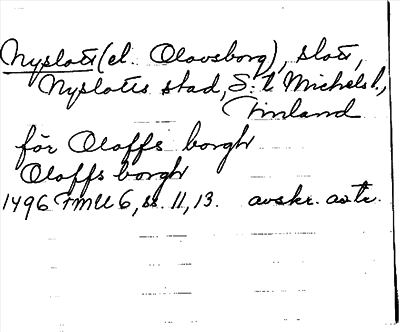 Nyslott (el. Olovsborg), slott,
Nyslotts stad, S:t Michels l.,
Finland
för Oloffs borgh
Oloffs borgh
1496 FMU 6, ss. 11, 13. avskr. o str.